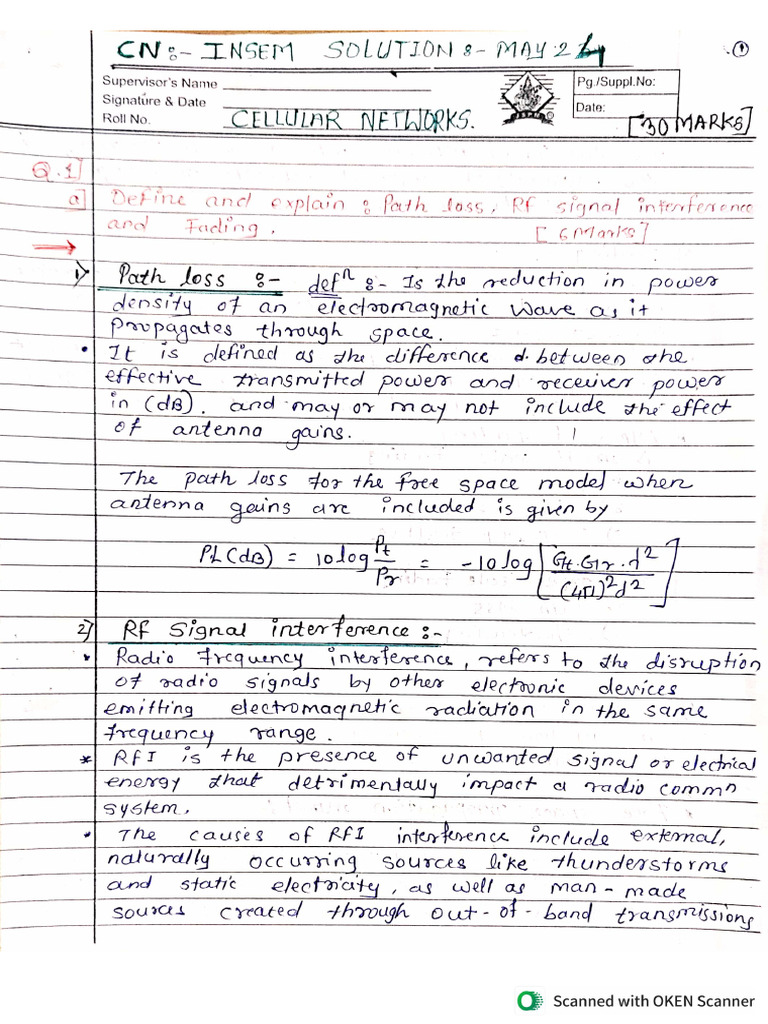 CN:- INSEM SOLUTION:- MAY-24
①
Supervisor's Name
Signature & Date
Roll No. CELLULAR NETWORKS.
Pg./Suppl.No:
Date:
[30 MARKS]
Q.1]
a] Define and explain : Path loss, RF signal interference
and Fading. [6 Marks]
→
1) Path loss :- defⁿ :- Is the reduction in power
density of an electromagnetic wave as it
propagates through space.
• It is defined as the difference between the
effective transmitted power and receiver power
in (dB). and may or may not include the effect
of antenna gains.
The path loss for the free space model when
antenna gains are included is given by
PL(dB) = 10 log Pt/Pr = -10 log [Gt.Gr.λ²/(4π)²d²]
2] RF Signal interference :-
• Radio frequency interference, refers to the disruption
of radio signals by other electronic devices
emitting electromagnetic radiation in the same
frequency range.
* RFI is the presence of unwanted signal or electrical
energy that detrimentally impact a radio commn
system.
• The causes of RFI interference include external,
naturally occurring sources like thunderstorms
and static electricity, as well as man-made
sources created through out-of-band transmissions
Scanned with OKEN Scanner